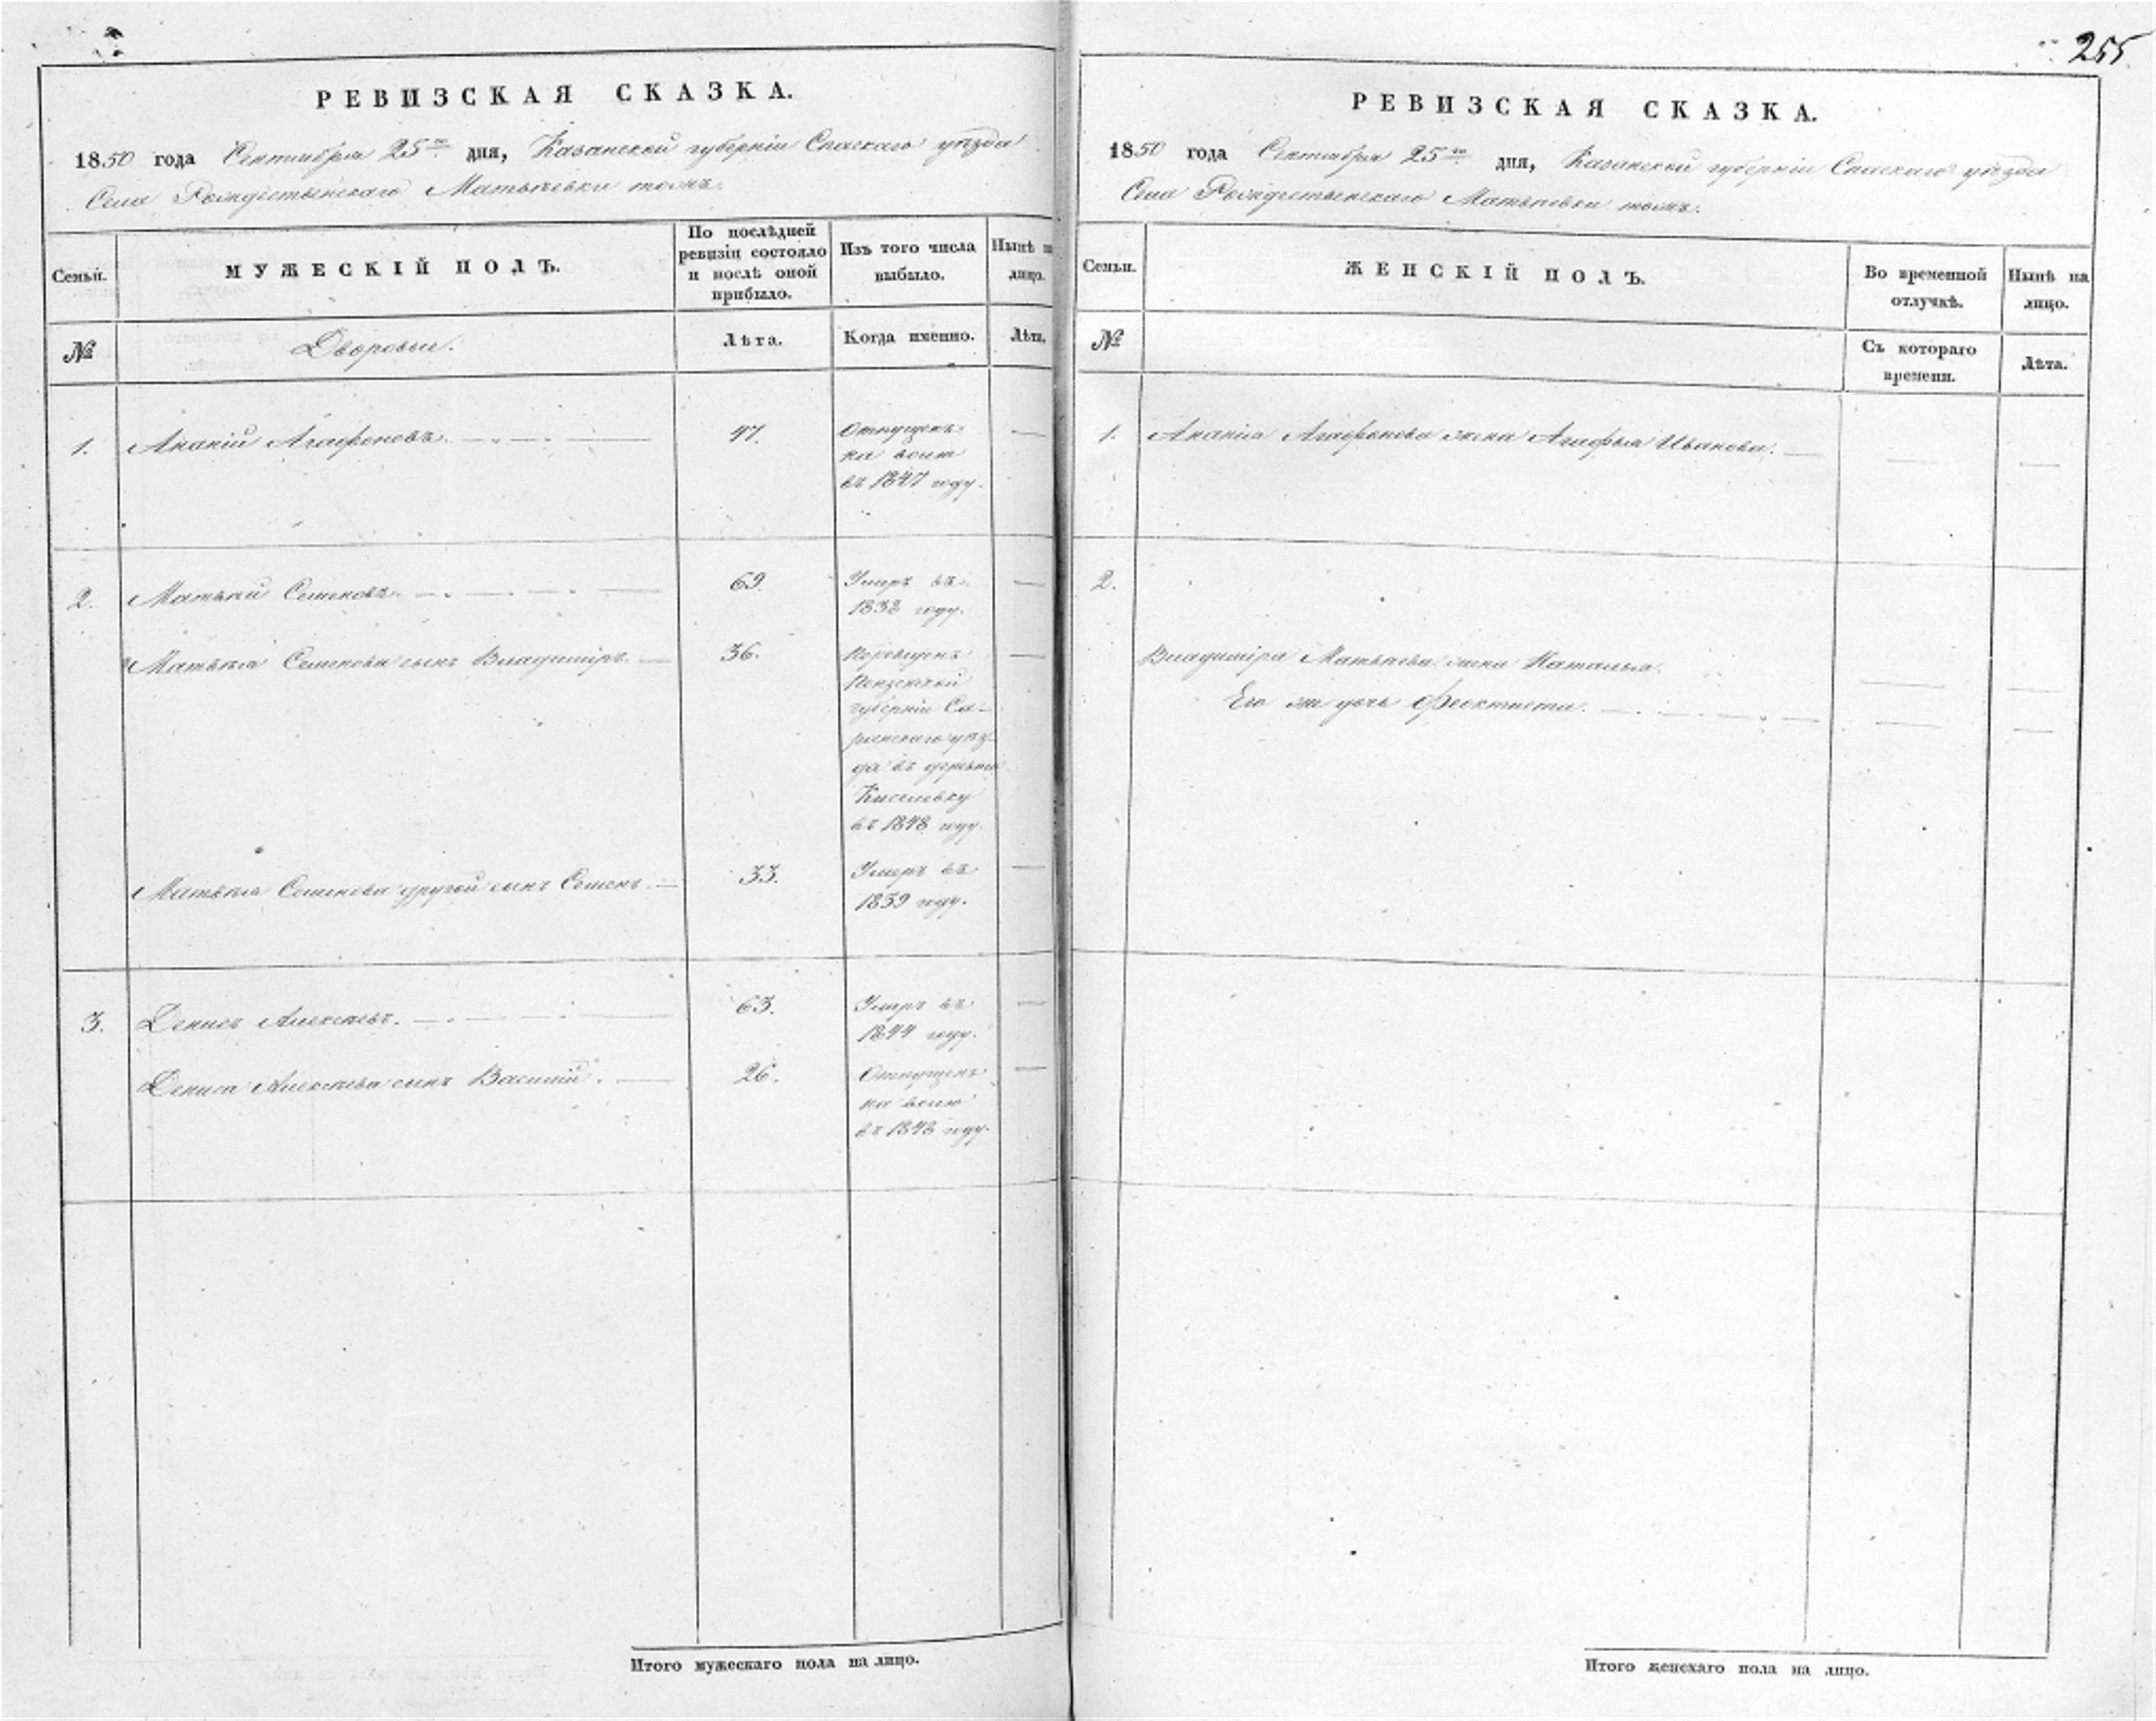 255
РЕВИЗСКАЯ СКАЗКА.
1850 года Сентября 25го дня, Казанской губерніи Спаскаго уѣзда
Села Рождественскаго Матвѣевки тожъ.
Семьи.
МУЖЕСКІЙ ПОЛЪ.
По послѣдней
ревизіи состояло
и послѣ оной
прибыло.
Изъ того числа
выбыло.
Нынѣ на
лицо.
№
Дворовые.
Лѣта.
Когда именно.
Лѣта.
1.
Ананій Агафоновъ.
47.
Отпущенъ
на волю
въ 1847 году.
2.
Матвѣй Семеновъ.
69.
Умеръ въ
1838 году.
Матвѣя Семенова сынъ Владиміръ.
36.
Переведенъ
Пензенской
губерніи Са-
ранскаго уѣз-
да въ деревню
Киселевку
въ 1848 году.
Матвѣя Семенова другой сынъ Семенъ.
33.
Умеръ въ
1839 году.
3.
Денисъ Алексѣевъ.
63.
Умеръ въ
1844 году.
Дениса Алексѣева сынъ Василій.
26.
Отпущенъ
на волю
въ 1848 году.
Итого мужескаго пола на лицо.
РЕВИЗСКАЯ СКАЗКА.
1850 года Сентября 25го дня, Казанской губерніи Спаскаго уѣзда
Села Рождественскаго Матвѣевки тожъ.
Семьи.
ЖЕНСКІЙ ПОЛЪ.
Во временной
отлучкѣ.
Нынѣ на
лицо.
№
Съ котораго
времени.
Лѣта.
1.
Ананія Агафонова жена Агафья Иванова.
2.
Владиміра Матвѣева жена Наталья.
Его же дочь Феоктиста.
Итого женскаго пола на лицо.